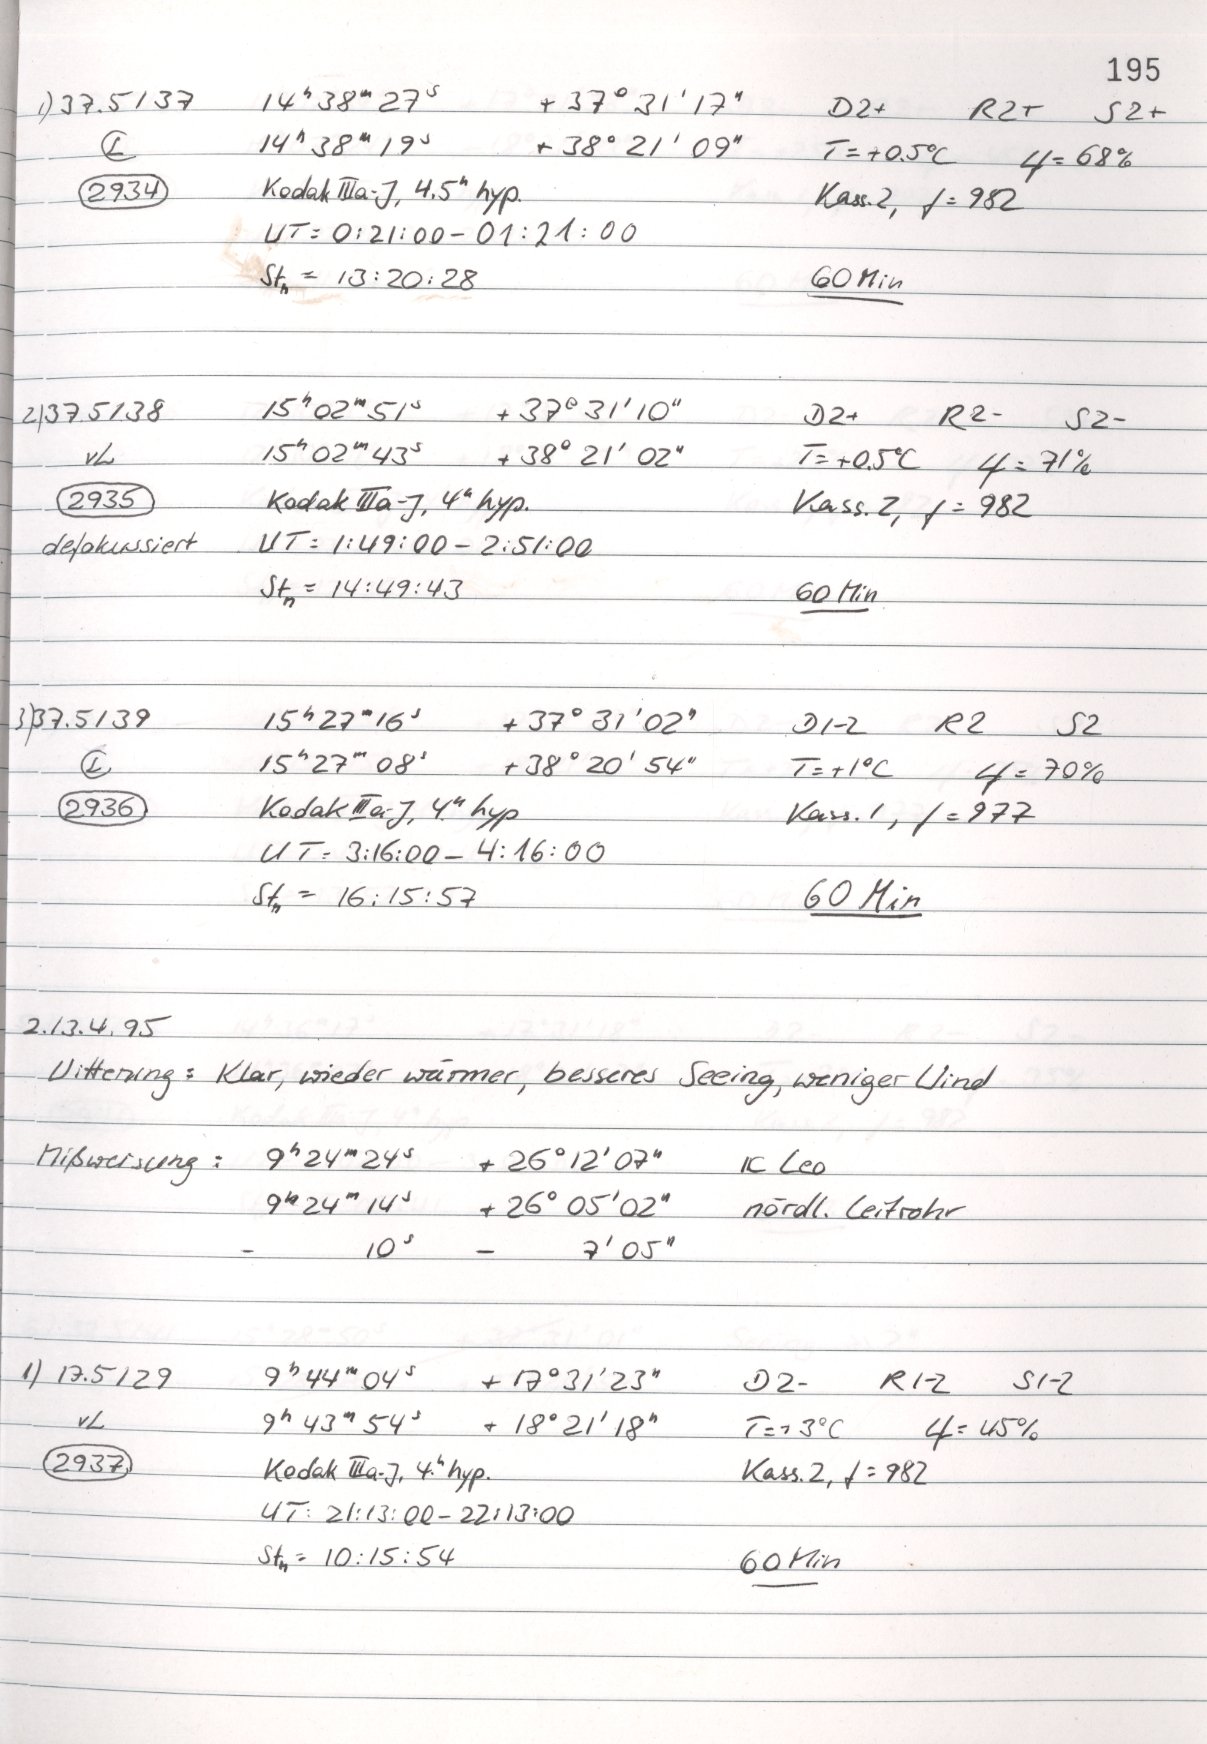 195
1) 37.5137 14ʰ38ᵐ27ˢ +37°31'17" D2+ R2+ S2+
I 14ʰ38ᵐ19ˢ +38°21'09" T=+0.5°C φ=68%
2934 Kodak IIIa-J, 4.5ʰ hyp. Kass.2, f=982
UT=0:21:00-01:21:00
Stₙ = 13:20:28 60 Min
2) 37.5138 15ʰ02ᵐ51ˢ +37°31'10" D2+ R2- S2-
vL 15ʰ02ᵐ43ˢ +38°21'02" T=+0.5°C φ=71%
2935 Kodak IIIa-J, 4ʰ hyp. Kass.2, f=982
defokussiert UT=1:49:00-2:51:00
Stₙ = 14:49:43 60 Min
3) 37.5139 15ʰ27ᵐ16ˢ +37°31'02" D1-2 R2 S2
I 15ʰ27ᵐ08ˢ +38°20'54" T=+1°C φ=70%
2936 Kodak IIIa-J, 4ʰ hyp Kass.1, f=977
UT=3:16:00-4:16:00
Stₙ = 16:15:57 60 Min
2.13.4.95
Witterung: Klar, wieder wärmer, besseres Seeing, weniger Wind
Mißweisung: 9ʰ24ᵐ24ˢ +26°12'07" κ Leo
9ʰ24ᵐ14ˢ +26°05'02" nördl. Leitrohr
- 10ˢ - 7'05"
1) 17.5129 9ʰ44ᵐ04ˢ +17°31'23" D2- R1-2 S1-2
vL 9ʰ43ᵐ54ˢ +18°21'18" T=+3°C φ=45%
2937 Kodak IIIa-J, 4ʰ hyp. Kass.2, f=982
UT: 21:13:00-22:13:00
Stₙ = 10:15:54 60 Min